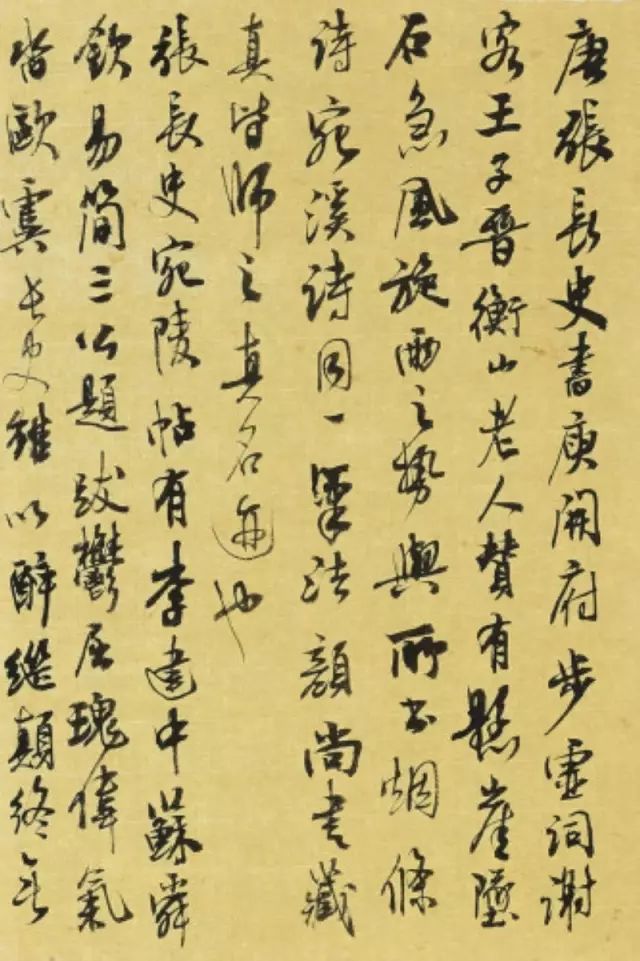 唐張長史書庾開府步虛詞謝
客王子晉衡山老人贊有懸崖墜
石急風旋雨之勢與所書烟條
詩宛溪詩同一筆法顏尚書藏
真皆師之真名迹也
張長史宛陵帖有李建中蘇舜
欽易簡三公題跋鬱屈瑰偉氣
皆歐虞長史雖以醉繼顛終無